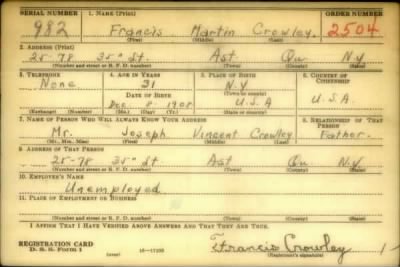 SERIAL NUMBER 1. NAME (Print) ORDER NUMBER
982 Francis Martin Crowley. 2504
(First) (Middle) (Last)
2. ADDRESS (Print)
25-78 35" St. Ast Qu N.Y
(Number and street or R. F. D. number) (Town) (County) (State)
3. TELEPHONE 4. AGE IN YEARS 5. PLACE OF BIRTH 6. COUNTRY OF CITIZENSHIP
None 31 N.Y
DATE OF BIRTH (Town) (County)
Dec 8 1908 U.S.A U.S.A.
(Exchange) (Number) (Mo.) (Day) (Yr.) (State or country)
7. NAME OF PERSON WHO WILL ALWAYS KNOW YOUR ADDRESS 8. RELATIONSHIP OF THAT PERSON
Mr. Joseph Vincent Crowley Father.
(Mr., Mrs., Miss) (First) (Middle) (Last)
9. ADDRESS OF THAT PERSON
25-78 35" St Ast Qu. N.Y
(Number and street or R. F. D. number) (Town) (County) (State)
10. EMPLOYER'S NAME
Unemployed
11. PLACE OF EMPLOYMENT OR BUSINESS
(Number and street or R. F. D. number) (Town) (County) (State)
I AFFIRM THAT I HAVE VERIFIED ABOVE ANSWERS AND THAT THEY ARE TRUE.
REGISTRATION CARD
D. S. S. Form 1 (over) 16-17105 Francis Crowley
(Registrant's signature)